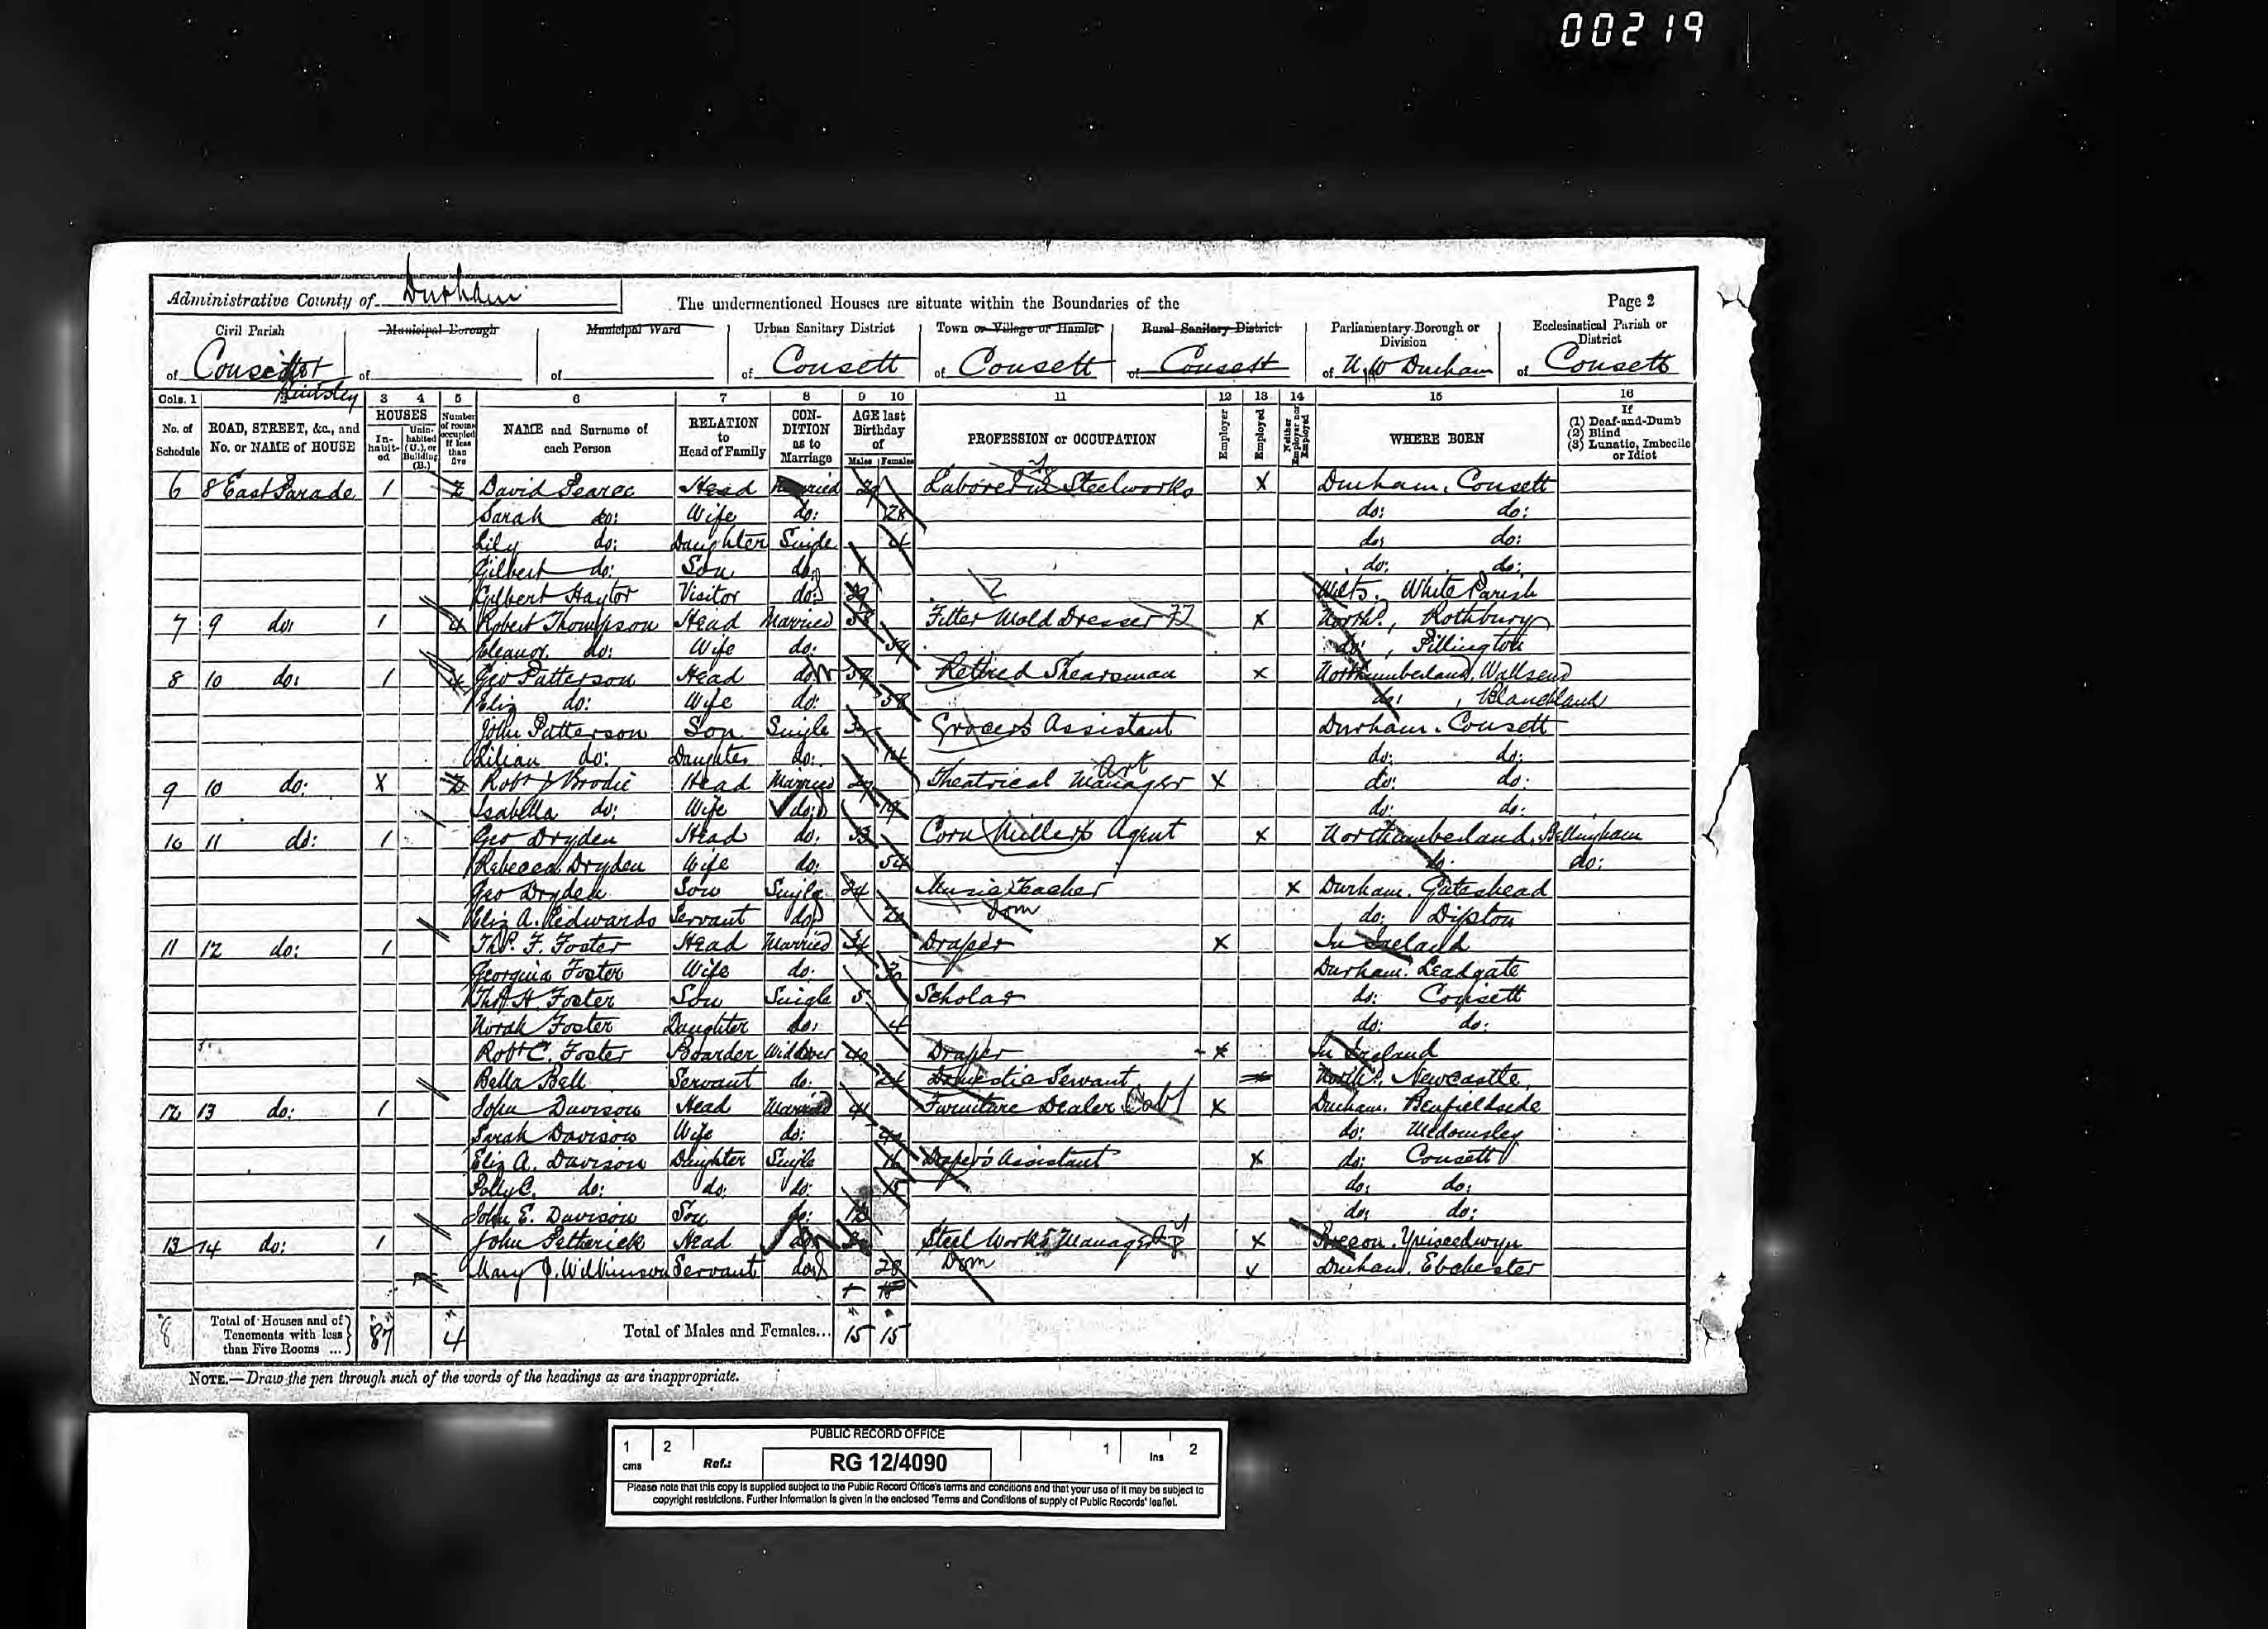 00219
Administrative County of Durham The undermentioned Houses are situate within the Boundaries of the Page 2
Civil Parish Municipal Borough Municipal Ward Urban Sanitary District Town or Village or Hamlet Rural Sanitary District Parliamentary Borough or Division Ecclesiastical Parish or District
of Consett of of of Consett of Consett of Consett of N.W Durham of Consett
Cols. 1 2 3 4 5 6 7 8 9 10 11 12 13 14 15 16
No. of Schedule ROAD, STREET, &c., and No. or NAME of HOUSE HOUSES Inhabited Uninhabited (U.), or Building (B.) Number of rooms occupied if less than five NAME and Surname of each Person RELATION to Head of Family CONDITION as to Marriage AGE last Birthday of Males Females PROFESSION or OCCUPATION Employer Employed Neither Employer nor Employed WHERE BORN If (1) Deaf-and-Dumb (2) Blind (3) Lunatic, Imbecile or Idiot
6 8 East Parade 1 2 David Pearec Head Married 29 Laborer in Steelworks X Durham, Consett
Sarah do: Wife do: 28 do: do:
Lily do: Daughter Single 4 do: do:
Gilbert do: Son do: 1 do: do:
Gilbert Haytor Visitor do: Wilts. White Parish
7 9 do: 1 4 Robert Thompson Head Married Fitter Mold Dresser X North'd., Rothbury
Eleanor do: Wife do: 54 do: ,
8 10 do: 1 4 Geo Patterson Head do: 59 Retired Shearsman X Northumberland, Wallsend
Eliz do: Wife do: 58 do: , Blanchland
John Patterson Son Single Grocers Assistant Durham. Consett
Lilian do: Daughter do: 14 do: do:
9 10 do: X 2 Robt J Brodie Head Married 29 Theatrical Manager Art X do: do:
Isabella do: Wife do: 19 do: do:
10 11 do: 1 Geo Dryden Head do: 53 Corn Millers Agent X Northumberland, Bellingham
Rebecca Dryden Wife do: 54 do: do:
Geo Dryden Son Single 24 Music Teacher X Durham. Gateshead
Eliz A. Edwards Servant do: 20 Dom do: Dipton
11 12 do: 1 Thos. F. Foster Head Married 34 Draper X In Ireland
Georgina Foster Wife do. 30 Durham. Leadgate
Thos H. Foster Son Single 5 Scholar do: Consett
Norah Foster Daughter do: 4 do: do:
Robt C. Foster Boarder Widower 40 Draper X In Ireland
Bella Bell Servant do. 24 Domestic Servant North'd, Newcastle,
12 13 do: 1 John Davison Head Married 41 Furniture Dealer X Durham. Benfieldside
Sarah Davison Wife do: do: Medomsley
Eliz A. Davison Daughter Single 16 Draper's Assistant X do: Consett
Polly C. do: do: do: 15 do: do:
John E. Davison Son do: 13 do: do:
13 14 do: 1 John Petherick Head do: Steel Works Manager X Brecon. Yniscedwyn
Mary J. Wilkinson Servant do: 28 Dom X Durham. Ebchester
8 Total of Houses and of Tenements with less than Five Rooms ... 87 4 Total of Males and Females... 15 15
NOTE.—Draw the pen through such of the words of the headings as are inappropriate.
PUBLIC RECORD OFFICE
1 2 1 2
cms Ref.: RG 12/4090 Ins
Please note that this copy is supplied subject to the Public Record Office's terms and conditions and that your use of it may be subject to
copyright restrictions. Further information is given in the enclosed 'Terms and Conditions of supply of Public Records' leaflet.